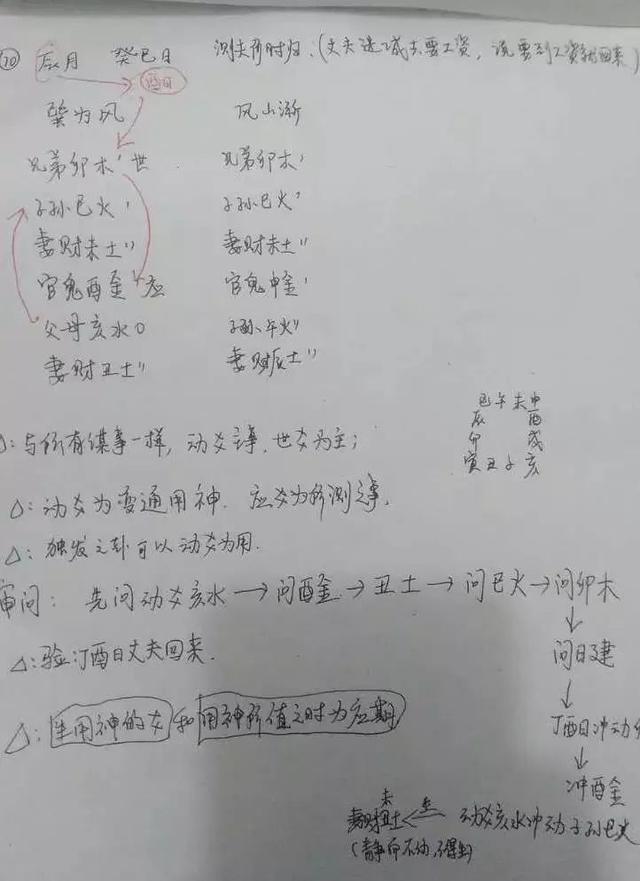 ⑩ 辰月 癸巳日 测夫何时归:(丈夫进城去要工资,说要到工资就回来)
巽为风 风山渐
兄弟卯木' 世 兄弟卯木'
子孙巳火' 子孙巳火'
妻财未土" 妻财未土"
官鬼酉金' 应 官鬼申金'
父母亥水〇 子孙午火"
妻财丑土" 妻财辰土"
巳午未申
辰 酉
卯 戌
寅丑子亥
:与所有谋事一样,动爻主事,世爻为主;
△:动爻为变通用神.应爻为所测之事.
△:独发之卦可以动爻为用.
审问: 先问动爻亥水→问酉金→丑土→问巳火→问卯木
↓
问日建
↓
丁酉日冲动
↓
冲酉金
△:验:丁酉日丈夫回来.
△:生用神的爻和用神所值之时为应期
未
妻财丑土 生 动爻亥水冲动子孙巳火
(静而不动,不得生)